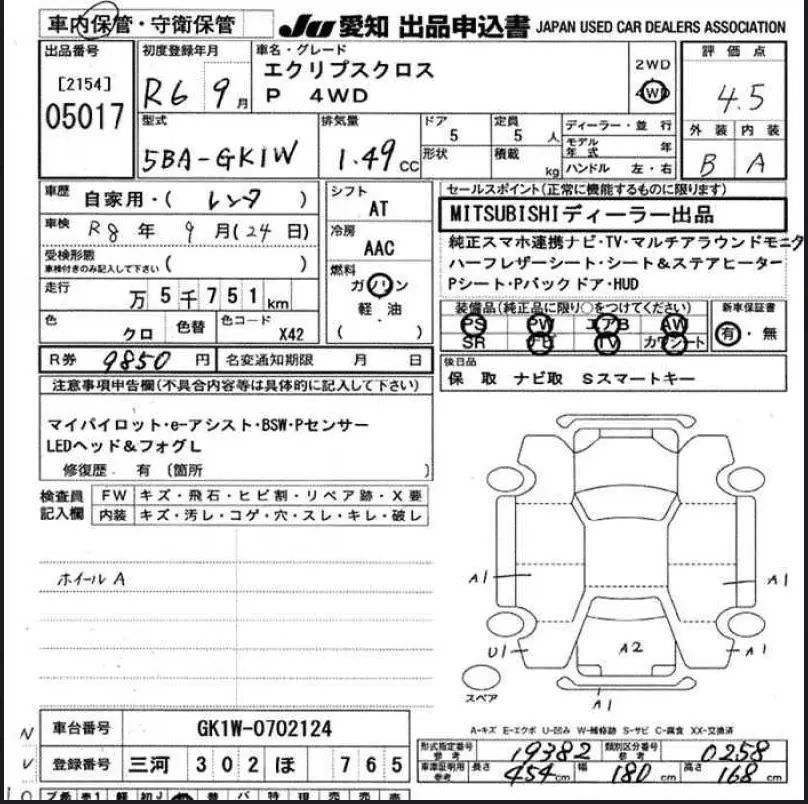 車内保管・守衛保管 JU 愛知 出品申込書 JAPAN USED CAR DEALERS ASSOCIATION
出品番号 初度登録年月 車名・グレード 評価点
[2154] R6 9月 エクリプスクロス 2WD
05017 P 4WD 4WD 4.5
型式 排気量 ドア 定員 ディーラー・並行 外装 内装
5BA-GK1W 1.49cc 5 5人 モデル年式 年 B A
形状 積載 kg ハンドル 左・右
車歴 自家用・( レンタ ) シフト AT セールスポイント(正常に機能するものに限ります)
車検 R8年 9月(24日) 冷房 AAC MITSUBISHIディーラー出品
受検形態 車検付きのみ記入して下さい ( ) 燃料 純正スマホ連携ナビ・TV・マルチアラウンドモニタ
ガソリン ハーフレザーシート・シート&ステアヒーター
走行 万5千751km 軽油 PシートPバックドア・HUD
( ) 装備品(純正品に限り○をつけてください) 新車保証書
色 クロ 色替 色コード X42 PS PW エアB AW 有・無
SR ナビ TV カワシート
R券 9850円 名変通知期限 月 日 後日品
注意事項申告欄(不具合内容等は具体的に記入して下さい) 保 取 ナビ取 Sスマートキー
マイパイロット・e-アシスト・BSW・Pセンサー
LEDヘッド&フォグL
修復歴. 有 (箇所 )
検査員記入欄 FW キズ・飛石・ヒビ割・リペア跡・X要
内装 キズ・汚レ・コゲ・穴・スレ・キレ・破レ
ホイールA
A1 A1
U1 A2 A1
スペア A1
A-キズ E-エクボ U-凹み W-補修跡 S-サビ C-腐食 XX-交換済
N 車台番号 GK1W-0702124
形式指定番号 参考 19382 類別区分番号 参考 0258
V 登録番号 三河 302 ほ 765
車庫証明用 参考 長さ 454cm 幅 180cm 高さ 168cm